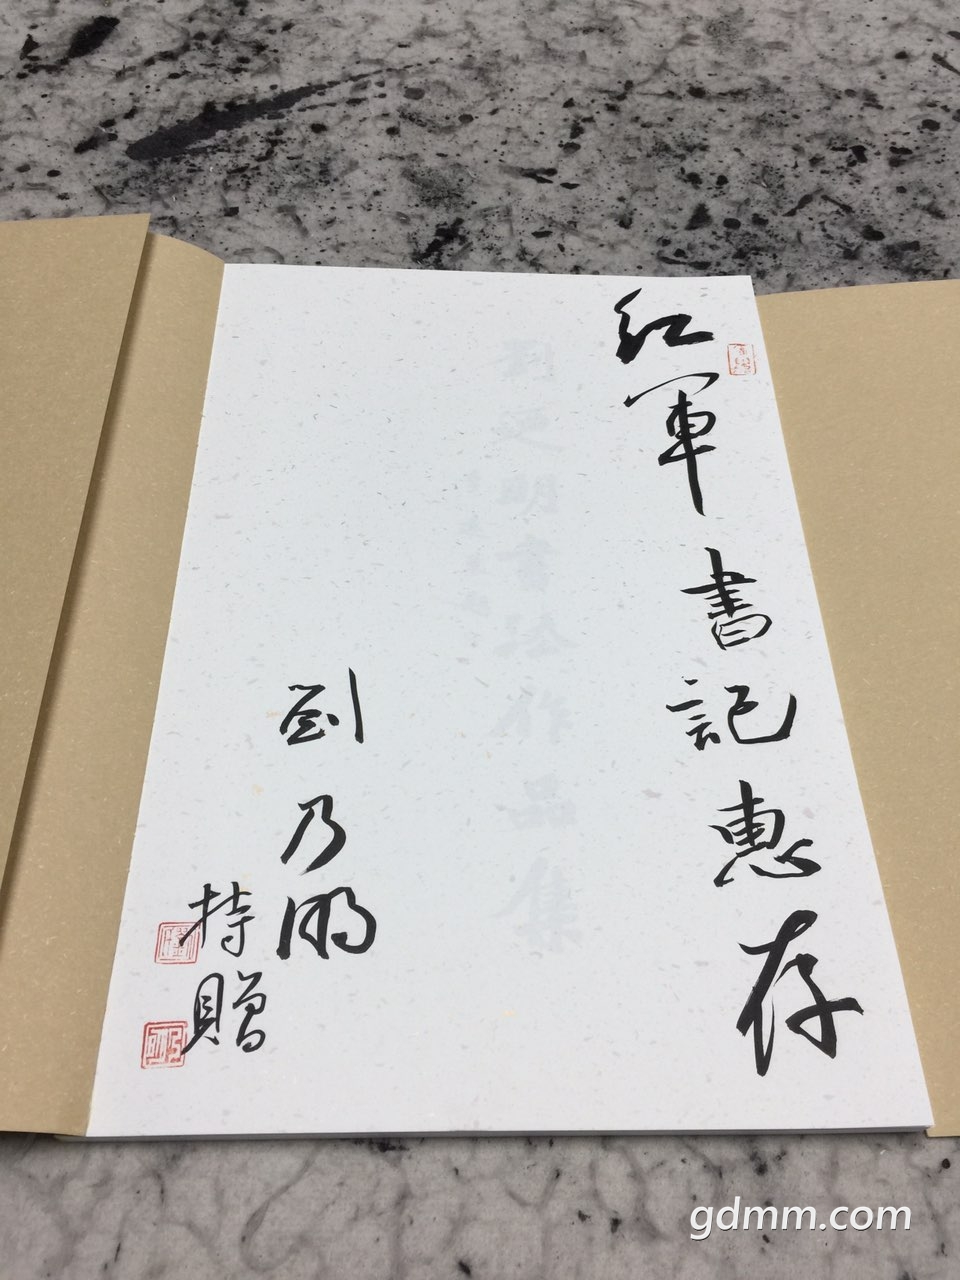 紅軍書記惠存
劉乃明
持贈
gdmm.com